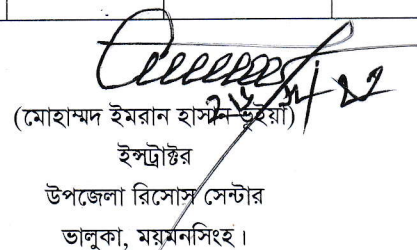 (মোহাম্মদ ইমরান হাসান ভূইয়া)
ইন্সট্রাক্টর
উপজেলা রিসোস সেন্টার
ভালুকা, ময়মনসিংহ।